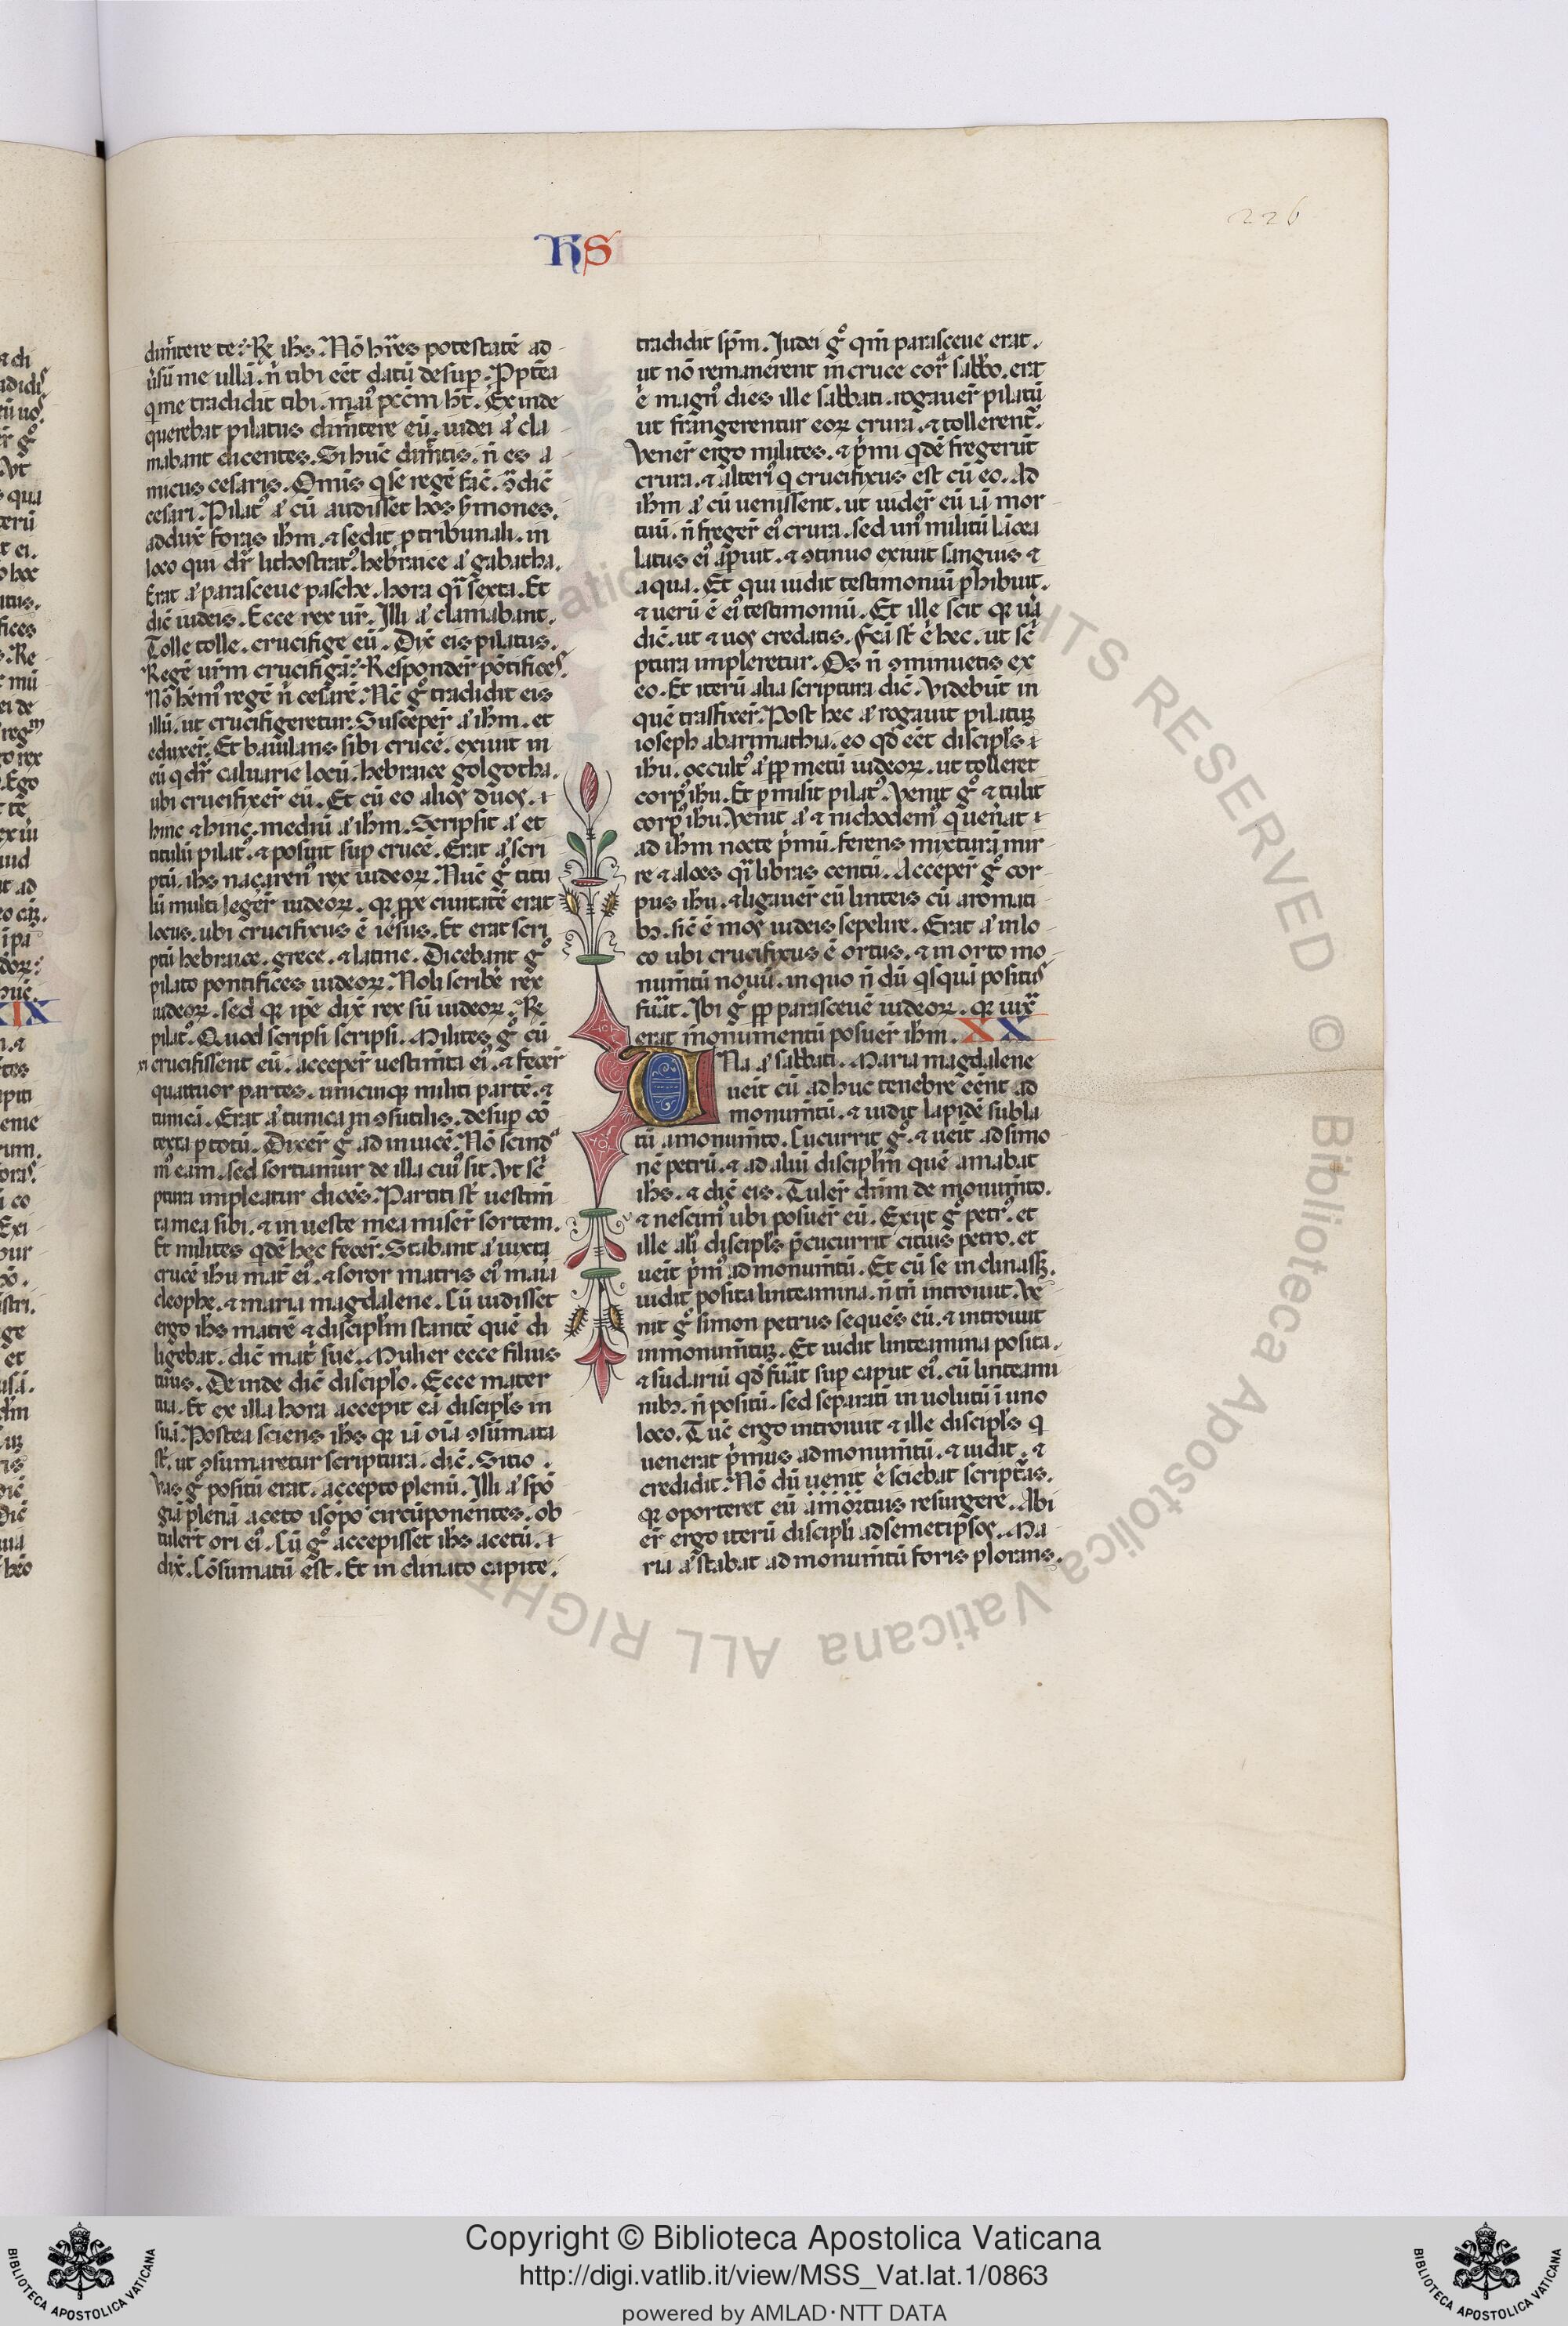 226
HS
dimı̄tere te? R̄ ihs. Nō hr̄es potestatē ad
ūsū me ullā. n̄ tibi eēt datū desup. Pptea
q me tradidit tibi. maiꝰ pccm̄ ht̄. Exinde
querebat pilatus dimı̄tere eū. iudei aͥ cla
mabant dicentes. Si hūc dimı̄tis. n̄ es a
micus cesaris. Om̄is q se regē facͥ. ↄ̄dicͥ
cesari. Pilatꝰ aͥ cū audisset hos s̄mones.
adduxͥ foras ihm̄. ⁊ sedit p tribunali. in
loco qui dr̄ lithostratꝰ. hebraice aͥ gabatha.
Erat aͥ parasceue pasche. hora qͣi sexta. Et
dicͥ iudeis. Ecce rex ur̄. Illi aͥ clamabant.
Tolle tolle. crucifige eū. Dixͥ eis pilatus.
Regē ur̄m crucifigā? Responder̄ pōtifices.
Nō hēmꝰ regē nͥ cesarē. Nc̄ gͦ tradidit eis
illū. ut crucifigeretur. Susceper̄ aͥ ihm̄. et
eduxer̄. Et baiulans sibi crucē. exiuit in
eū q dr̄ caluarie locū. hebraice golgotha.
ubi crucifixer̄ eū. Et cū eo alios duos.
hinc ⁊ hinc. mediū aͥ ihm̄. Scripsit aͥ et
titulū pilatꝰ. ⁊ posuit sup crucē. Erat aͥ scri
ptū. ihs naçarenꝰ rex iudeoꝝ. Nūc gͦ titu
lū multi leger̄ iudeoꝝ. qꝛ ppe ciuitatē erat
locus. ubi crucifixus ē iesus. Et erat scri
ptū hebraice. grece. ⁊ latine. Dicebant gͦ
pilato pontifices iudeoꝝ. Noli scribͤe rex
iudeoꝝ. sed qꝛ ip̄e dixͥ rex sū iudeoꝝ. R̄
pilatꝰ. Quod scripsi scripsi. Milites gͦ cū
crucifissent eū. acceper̄ uestim̄ta eiꝰ. ⁊ fecer̄
quattuor partes. unicuiqꝫ militi partē. ⁊
tunicā. Erat aͥ tunica inↄsutilis. desup cō
texta p totū. Dixer̄ gͦ ad inuicē. Nō scindaͣ
mꝰ eam. sed sortiamur de illa cuiꝰ sit. Vt sc̄
ptura impleatur dicēs. Partiti st̄ uestim̄
ta mea sibi. ⁊ in ueste mea miser̄ sortem.
Et milites qdē hec fecer̄. Stabant aͥ iuxta
crucē ihu mat̄ eiꝰ. ⁊ soror matris eiꝰ maͥia
cleophe. ⁊ maria magdalene. Cū uidisset
ergo ihs matrē ⁊ discipl̄m stantē quē di
ligebat. dicͥ mat̄i sue. Mulier ecce filius
tuus. Deinde dicͥ discipl̄o. Ecce mater
tua. Et ex illa hora accepit eā discipl̄s in
suā. Postea sciens ihs qꝛ iā oı̄a ↄsūmata
st̄. ut ↄsumaretur scriptura. dicͥ. Sitio.
Vas gͦ positū erat. accepto plenū. Illi aͥ spō
giā plenā aceto isopo circūponentes. ob
tulert̄ ori eiꝰ. Cū gͦ accepisset ihs acetū.
dixͥ. Cōsumatū est. Et inclinato capite.
tradidit spm̄. Iudei gͦ qm̄ parasceue erat.
ut nō remanerent in cruce corͣ sabbo. erat
ē magnꝰ dies ille sabbati. rogauer̄ pilatū
ut frangerentur eoꝝ crura. ⁊ tollerent̄.
Vener̄ ergo milites. ⁊ pͥmi qdē fregerūt
crura. ⁊ alteriꝰ q crucifixus est cū eo. Ad
ihm̄ aͥ cū uenissent. ut uider̄ eū iā mor
tuū. n̄ freger̄ eiꝰ crura. sed unꝰ militū lācea
latus eiꝰ apͤuit. ⁊ ↄtinuo exiuit sanguis ⁊
aqua. Et qui uidit testimoniū phibuit.
⁊ uerū ē eiꝰ testimoniū. Et ille scit qꝛ uͣa
dicͥ. ut ⁊ uos credatis. Fcā st̄ ē hec. ut sc̄
ptura impleretur. Os n̄ ↄminuetis ex
eo. Et iterū alia scriptura dicͥ. Videbūt in
quē trasfixer̄. Post hec aͥ rogauit pilatuꝫ
ioseph abarimathia. eo qd̄ eēt discipl̄s
ihu. occultꝰ aͥ pp metū iudeoꝝ. ut tolleret
corpꝰ ihu. Et pmisit pilatꝰ. Venit gͦ ⁊ tulit
corpꝰ ihu. Venit aͥ ⁊ nichodemꝰ q uen̄at
ad ihm̄ nocte pͥmū. ferens mixturā mir
re ⁊ aloes qͣi libras centū. Acceper̄ gͦ cor
pus ihu. ⁊ ligauer̄ eū linteis cū aromati
bꝫ. sic̄ ē mos iudeis sepelire. Erat aͥ in lo
co ubi crucifixus ē ortus. ⁊ in orto mo
num̄tū nouū. in quo n̄ dū qsquā positus
fuͣat. Ibi gͦ pp parasceuē iudeoꝝ. qꝛ iuxͣ
erat monumentū posuer̄ ihm̄. XX
Vna aͥ sabbati. Maria magdalene
ueit cū adhuc tenebre eēnt ad
monum̄tū. ⁊ uidit lapidē subla
tū amonum̄to. Cucurrit gͦ. ⁊ ueit ad simo
nē petrū. ⁊ ad aliū discipl̄m quē amabat
ihs. ⁊ dicͥ eis. Tuler̄ dn̄m de monum̄to.
⁊ nescimꝰ ubi posuer̄ eū. Exijt gͦ petrꝰ. et
ille aliꝰ discipl̄s p̄cucurrit citius petro. et
ueit pͥmꝰ ad monum̄tū. Et cū se inclinassꝫ.
uidit posita linteamina. n̄ tn̄ introiuit. Ve
nit gͦ simon petrus sequēs eū. ⁊ introiuit
inmonum̄tuꝫ. Et uidit linteamina posita.
⁊ sudariū qd̄ fuͣat sup caput eiꝰ. cū linteami
nibꝫ. n̄ positū. sed separati inuolutū ı̄ uno
loco. Tūc ergo introiuit ⁊ ille discipl̄s q
venerat pͥmus ad monum̄tū. ⁊ uidit. ⁊
credidit. Nō dū uenit ē sciebat script̄as.
qꝛ oporteret eū amortuis resurgere. Abi
er̄ ergo iterū discipl̄i ad semetipsos. Ma
ria aͥ stabat ad monum̄tū foris plorans.
Copyright © Biblioteca Apostolica Vaticana
http://digi.vatlib.it/view/MSS_Vat.lat.1/0863
powered by AMLAD·NTT DATA